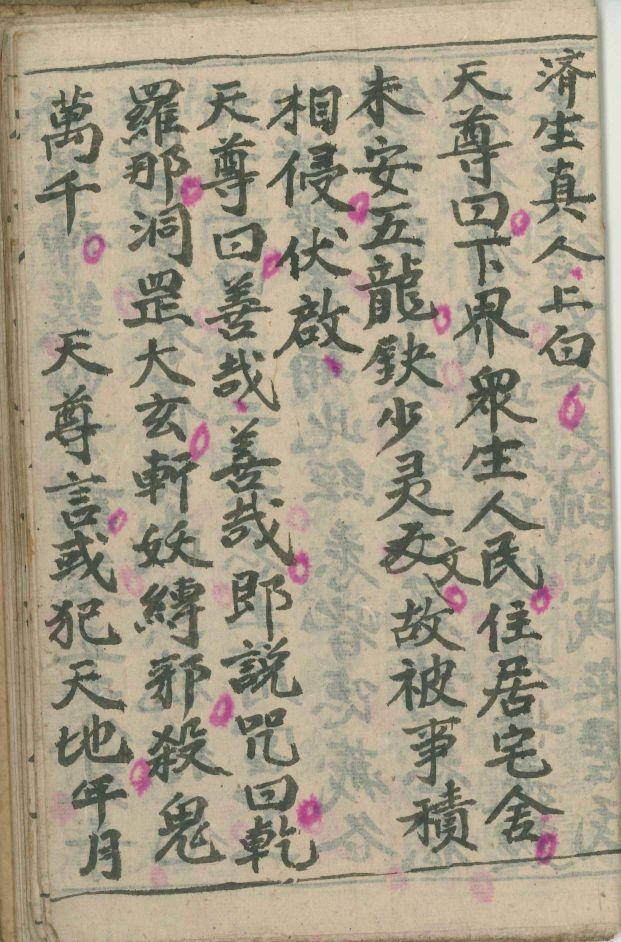 済生真人上白
天尊曰下界衆生人民住居宅舍
未安五龍鈌少灵文故被事積
相侵伏啟
天尊曰善哉善哉即説咒曰乾
羅那洞罡大玄斬妖縛邪殺鬼
萬千　天尊言或犯天地年月